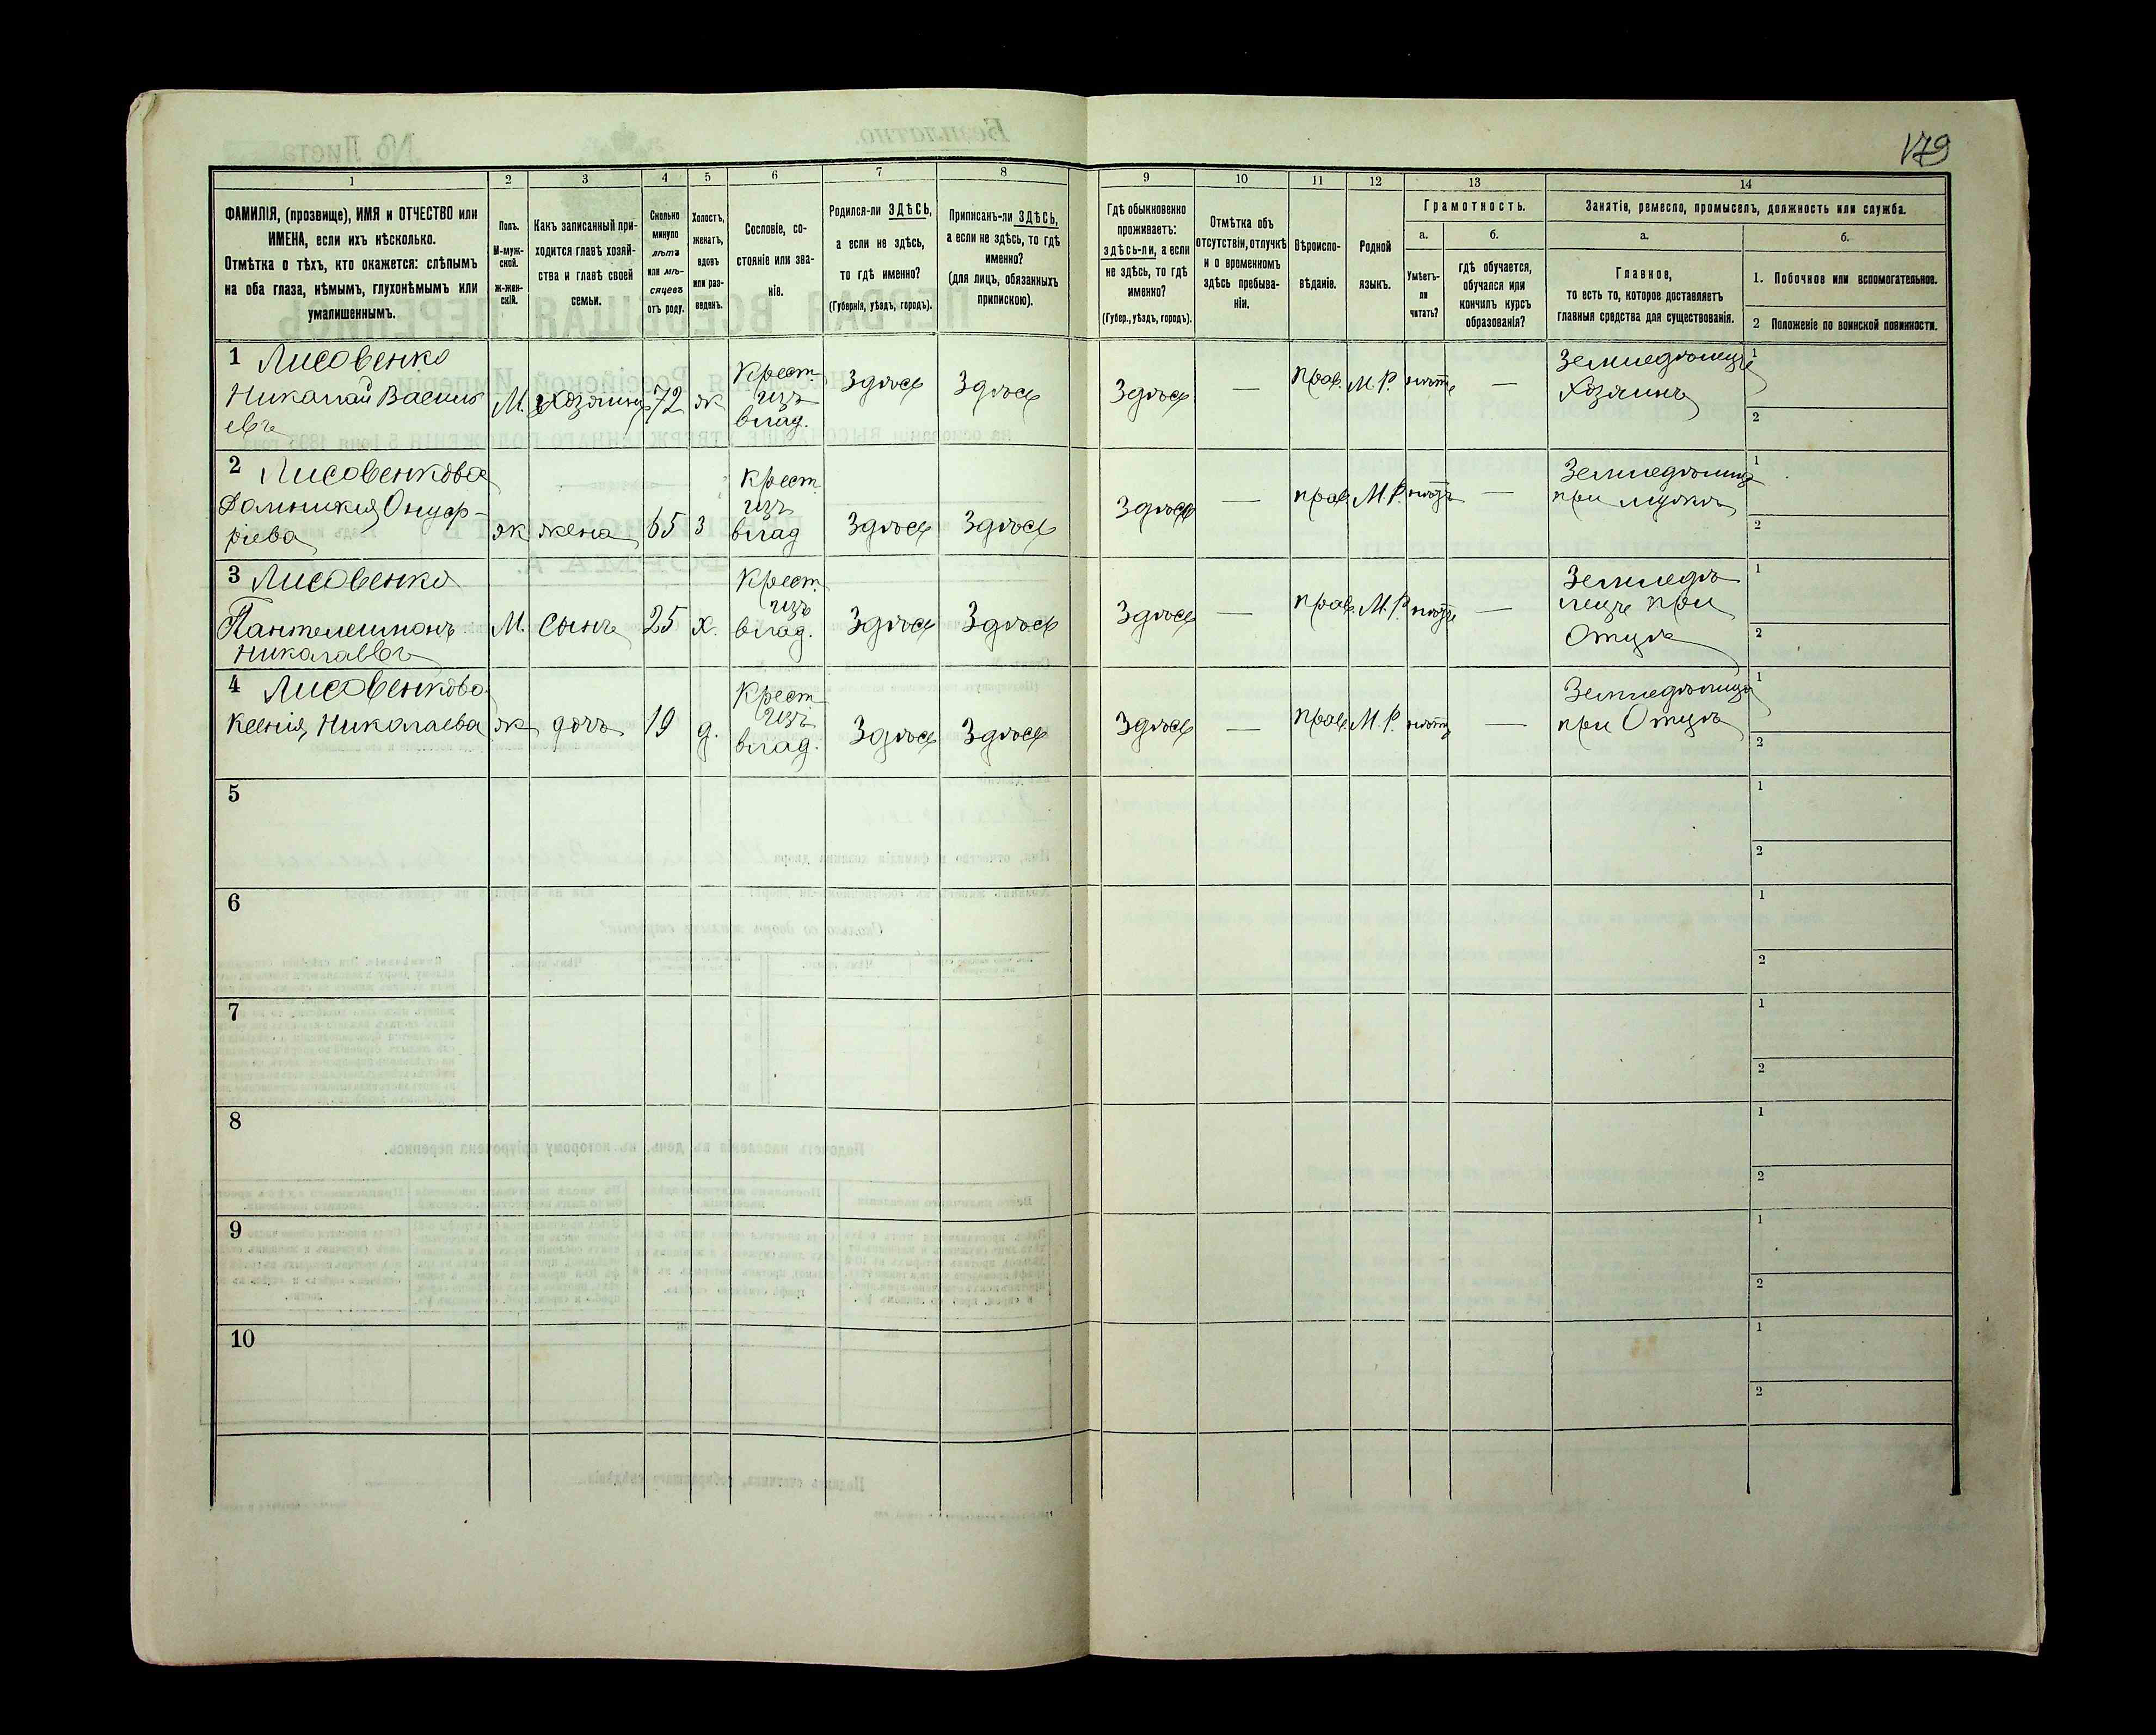 179
1 2 3 4 5 6 7 8 9 10 11 12 13 14
ФАМИЛІЯ, (прозвище), ИМЯ и ОТЧЕСТВО или
ИМЕНА, если ихъ нѣсколько.
Отмѣтка о тѣхъ, кто окажется: слѣпымъ
на оба глаза, нѣмымъ, глухонѣмымъ или
умалишеннымъ.
Полъ.
М-муж-
ской.
ж-жен-
скій.
Какъ записанный при-
ходится главѣ хозяй-
ства и главѣ своей
семьи.
Сколько
минуло
лѣтъ
или мѣ-
сяцевъ
отъ роду.
Холостъ,
женатъ,
вдовъ
или раз-
веденъ.
Сословіе, со-
стояніе или зва-
ніе.
Родился-ли ЗДѢСЬ,
а если не здѣсь,
то гдѣ именно?
(Губернія, уѣздъ, городъ).
Приписанъ-ли ЗДѢСЬ,
а если не здѣсь, то гдѣ
именно?
(для лицъ, обязанныхъ
припискою).
Гдѣ обыкновенно
проживаетъ:
здѣсь-ли, а если
не здѣсь, то гдѣ
именно?
(Губер., уѣздъ, городъ).
Отмѣтка объ
отсутствіи, отлучкѣ
и о временномъ
здѣсь пребыва-
ніи.
Вѣроиспо-
вѣданіе.
Родной
языкъ.
Грамотность.
а.
Умѣетъ-
ли
читать?
б.
гдѣ обучается,
обучался или
кончилъ курсъ
образованія?
Занятіе, ремесло, промыселъ, должность или служба.
а.
Главное,
то есть то, которое доставляетъ
главныя средства для существованія.
б.
1. Побочное или вспомогательное.
2 Положеніе по воинской повинности.
1 Лисовенко
Николай Василь
евъ
М. Хозяинъ 72 ж
Крест
изъ
влад.
Здѣсь Здѣсь Здѣсь — прав. М.Р. нѣтъ —
Земледѣлецъ
Хозяинъ
1
2
2 Лисовенкова
Домникия Онуф-
ріева
ж жена 65 З
Крест
изъ
влад
Здѣсь Здѣсь Здѣсь — прав. М.Р. нѣтъ —
Земледѣлица
при мужѣ
1
2
3 Лисовенко
Пантелеимонъ
Николаевъ
М. Сынъ 25 х.
Крест.
изъ
влад.
Здѣсь Здѣсь Здѣсь — прав. М.Р. нѣтъ —
Земледѣ
лецъ при
Отцѣ
1
2
4 Лисовенкова
Ксенія Николаева
ж дочь 19 д.
Крест
изъ
влад.
Здѣсь Здѣсь Здѣсь — прав. М.Р. нѣтъ —
Земледѣлица
при Отцѣ
1
2
5
1
2
6
1
2
7
1
2
8
1
2
9
1
2
10
1
2